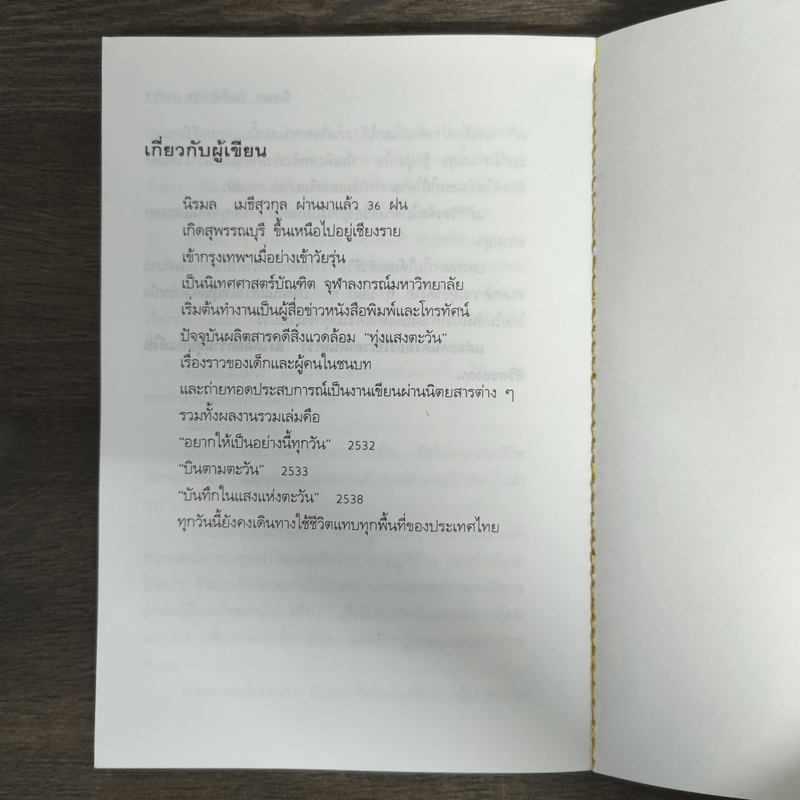 เกี่ยวกับผู้เขียน
นิรมล เมธีสุวกุล ผ่านมาแล้ว 36 ฝน
เกิดสุพรรณบุรี ขึ้นเหนือไปอยู่เชียงราย
เข้ากรุงเทพฯเมื่อย่างเข้าวัยรุ่น
เป็นนิเทศศาสตร์บัณฑิต จุฬาลงกรณ์มหาวิทยาลัย
เริ่มต้นทำงานเป็นผู้สื่อข่าวหนังสือพิมพ์และโทรทัศน์
ปัจจุบันผลิตสารคดีสิ่งแวดล้อม "ทุ่งแสงตะวัน"
เรื่องราวของเด็กและผู้คนในชนบท
และถ่ายทอดประสบการณ์เป็นงานเขียนผ่านนิตยสารต่าง ๆ
รวมทั้งผลงานรวมเล่มคือ
"อยากให้เป็นอย่างนี้ทุกวัน" 2532
"บินตามตะวัน" 2533
"บันทึกในแสงแห่งตะวัน" 2538
ทุกวันนี้ยังคงเดินทางใช้ชีวิตแทบทุกพื้นที่ของประเทศไทย